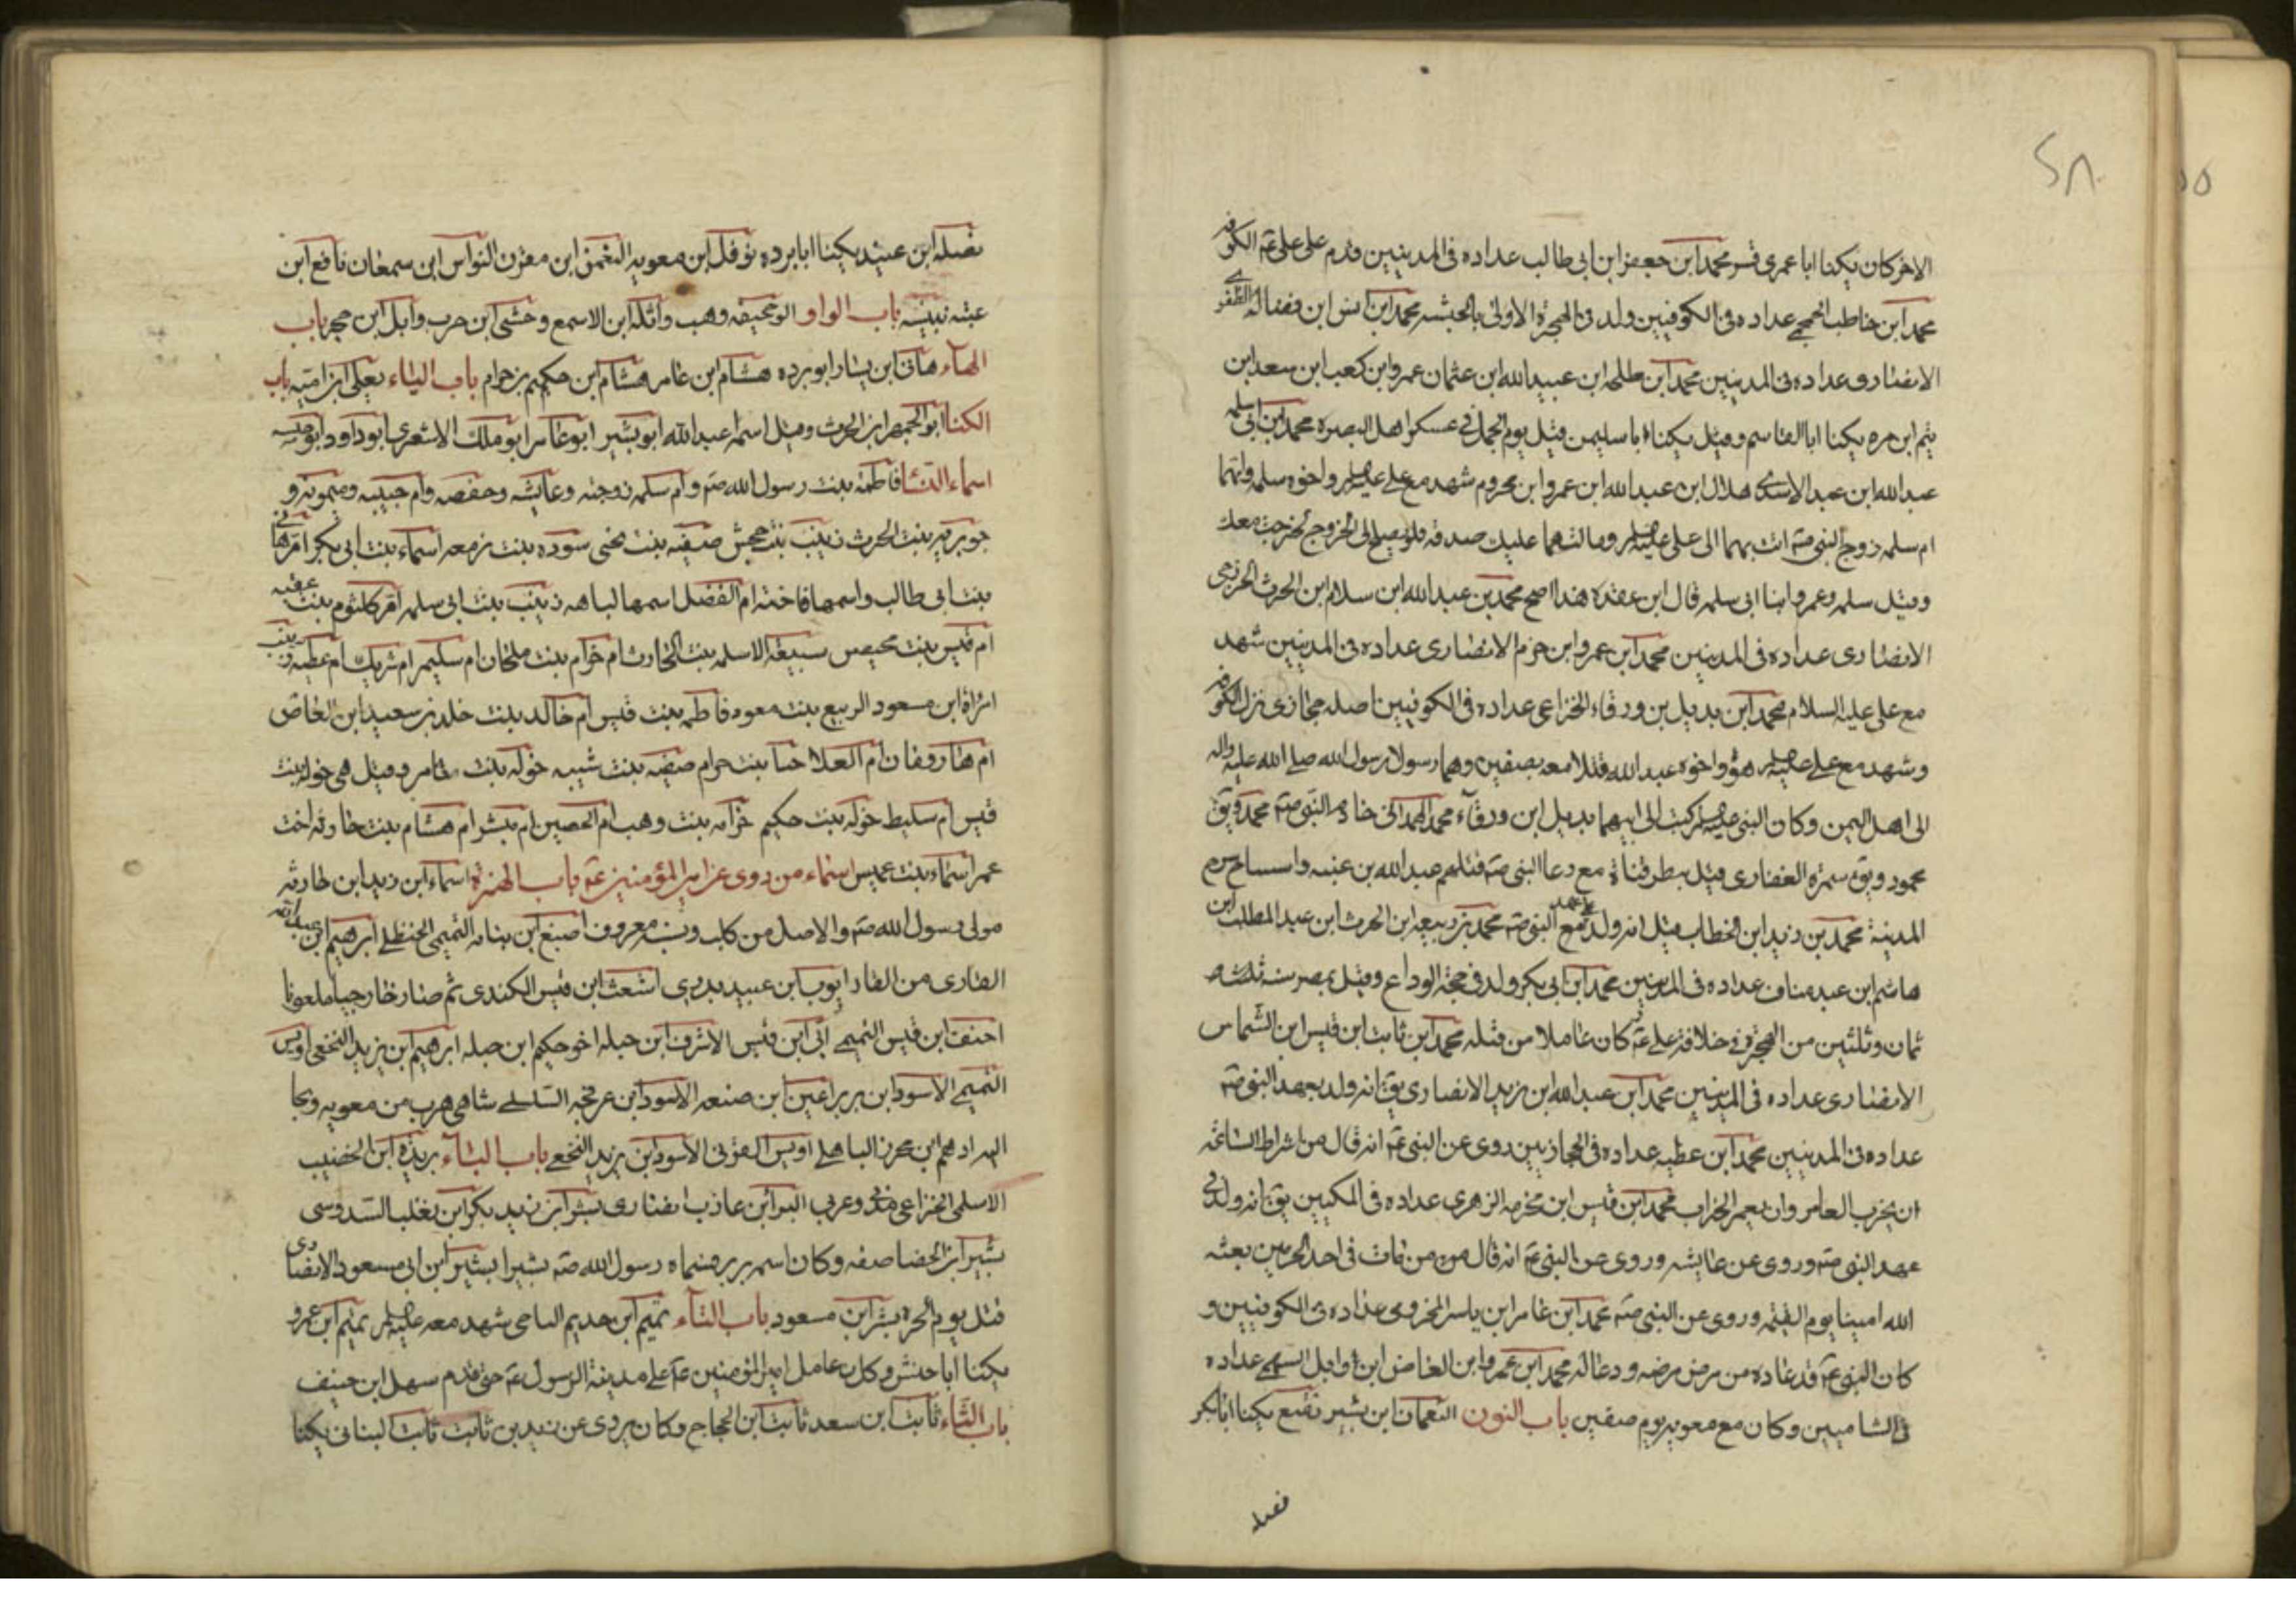 ٢٨
الاخر كان يكنا ابا عمرى قسر محمد ابن جعفر ابن ابى طالب عداده فى المدينيين وقدم على على عم الكوفه
محمد ابن حاطب الجمحے عداده فى الكوفيين ولد فى الهجرة الاولى بالحبشه محمد ابن انس ابن فضاله الظفرے
الانصارى عداده فى المدينيين محمد ابن طلحه ابن عبيدالله ابن عثمان عمرو ابن كعب ابن سعد ابن
يتم ابن مره يكنا ابا القاسم وقيل يكنا ابا سليمن قتل يوم الجمل فے عسكر اهل البصره محمد ابن ابى سلمه
عبدالله ابن عبد الاسدے هلال ابن عبدالله ابن عمرو ابن مخروم شهد مع على عليهلم واخوه سلمه وامهما
ام سلمه زوج النبى صم اتت بهما الى على عليهلم وقالت هما عليك صدقه فلو يصلح لى الخروج لخرجت معك
وقيل سلمه وعمرو ابنا ابى سلمه قال ابن عقده هذا اصح محمد بن عبدالله ابن سلام ابن الحرث الخزرجى
الانصارى عداده فى المدينيين محمد ابن عمرو ابن حزم الانصارى عداده فى المدينيين شهد
مع على عليه السلام محمد ابن بديل بن ورقاء الخزاعى عداده فى الكوفيين اصله حجازى نزل الكوفه
وشهد مع على عليهلم هو واخوه عبدالله قتلا معه بصفين وهما رسولا رسول الله صلى الله عليه واله
الى اهل اليمن وكان النبى عليهلم كتب الى ابيهما بديل ابن ورقآء محمد الهمدانى خادم النبى صم محمد ويق
محمود ويق سمرة الغفارى قيل بطرقناة مع دعاا النبى صم قتلهم عبدالله بن عنبسه
المدينة محمد بن زيد ابن الخطاب قيل انه ولد على عهد النبى صم محمد بن ربيعه ابن الحرث ابن عبد المطلب ابن
هاشم ابن عبد مناف عداده فى المدينيين محمد ابن ابى بكر ولد فى حجة الوداع وقيل بمصر سنه
ثمان وثلثين من الهجرة فے خلافة على عم كان عاملا من قتله محمد ابن ثابت ابن قيس ابن الشماس
الانصارى عداده فى المدينيين محمد ابن عبدالله ابن زيد الانصارى يق انه ولد بعهد النبى صم
عداده فى المدينيين محمد ابن عطيه عداده فى الحجازيين روى عن النبى عم انه قال من اشراط الساعة
ان يخرب العامر وان يعمر الخراب محمد ابن قيس ابن مخرمه الزهرى عداده فى المكيين يق انه ولد فے
عهد النبى صم وروى عن عايشه وروى عن النبى عم انه قال من من مات فى احد الحرمين بعثه
الله امينا يوم القيمه وروى عن النبى صم محمد ابن عامر ابن ياسر المخزومى عداده فى الكوفيين و
كان النبى عم قد عاده من مرض مرضه ودعا له محمد ابن عمرو ابن العاص ابن وايل السهمے عداده
فى الشاميين وكان مع معويه يوم صفين باب النون النعمان ابن بشير نفيع يكنا ابا بكر
نضله
نضله ابن عبيد يكنا ابا برده نوفل ابن معويه النعمن ابن مقرن النواس ابن سمعان نافع ابن
عتبه نبيشه باب الواو ابو جحيفه وهب واثله ابن الاسمع وحشى ابن حرب وايل ابن حجر باب
الهاء هانى ابن يسار ابو برده هشام ابن عامر هشام ابن حكيم بن حزام باب الياء يعلى ابن اميه باب
الكنا ابو الجهم ابن الحرث وقيل اسمه عبدالله ابو بشير ابو عامر ابو ملك الاشعرى ابو داود ابو حبه
اسماء النسا فاطمة بنت رسول الله صم وام سلمه زوجته وعايشه وحفصه وام حبيبه وميمونه و
جويريه بنت الحرث زينب بنت جحش صفيه بنت يحيى سوده بنت زمعه اسماء بنت ابى بكر ام هانى
بنت ابى طالب واسمها فاخته ام الفضل اسمها لبابه زينب بنت ابى سلمه ام كلثوم بنت عقبه
ام قيس بنت محيصن سبيعه الاسلمه بنت الحارث ام حرام بنت ملحان ام سليم ام شريك ام عطيه زينب
امراة ابن مسعود الربيع بنت معود فاطمه بنت قيس ام خالد بنت خلد بن سعيد ابن العاص
ام العلا بنت حرام صفيه بنت شيبه خوله بنت ثامر وقيل هى خوله بنت
قيس ام سليط خوله بنت حكيم بنت وهب ام الحصين ام بشر ام هشام بنت حارثه اخت
عمر اسماء بنت عميس اسماء من روى عن امير المؤمنين عم باب الهمزة اسماء ابن زيد ابن حارثه
مولى رسول الله صم والاصل من كلب ونسبه معروف اصبغ ابن نباته التميمى الحنظلے ابرهيم ابن عبدالله
القارى من القاره ايوب ابن عبيد بدرى اشعث ابن قيس الكندى ثم صار خارجيا ملعونا
احنف ابن قيس التميمے ابى ابن قيس الاشرف ابن جبله اخو حكيم ابن جبله ابرهيم ابن يزيد النخعى اويس
التميمے الاسود ابن برير اعين ابن ضبيعه الاسود ابن عرفجه السلسلے شامى هرب من معويه وجا
اليه ادهم ابن محرز الباهلے اويس القرنى الاسود ابن يزيد النخعے باب الباء بريدة ابن الخصيب
الاسلمى الخزاعى مدنى وعربى البرا ابن عاذب انصارى بشر ابن زيد بكر ابن تغلب السدوسى
بشير ابن الخصاصفه وكان اسمه برير فسماه رسول الله صم بشيرا بشير ابن ابى مسعود الانصارى
قتل يوم الحرة بشر ابن مسعود باب التآء تميم ابن حديم الناجى شهد معه عليهلم تميم ابن عمرو
يكنا ابا حنش وكان عامل امير المؤمنين عم على مدينة الرسول عم حتى قدم سهل ابن حنيف
باب الثاء ثابت ابن سعد ثابت ابن الحجاج وكان يروى عن زيد بن ثابت ثابت البنانى يكنا